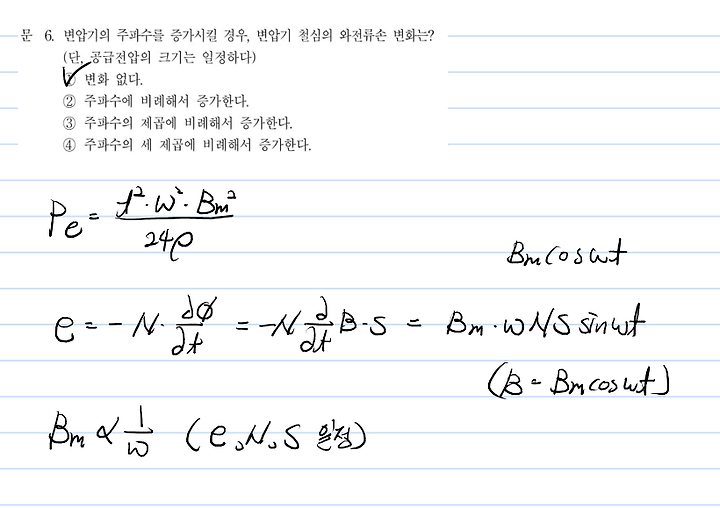 문 6. 변압기의 주파수를 증가시킬 경우, 변압기 철심의 와전류손 변화는?
(단, 공급전압의 크기는 일정하다)
① 변화 없다.
② 주파수에 비례해서 증가한다.
③ 주파수의 제곱에 비례해서 증가한다.
④ 주파수의 세 제곱에 비례해서 증가한다.
Pe = t²·ω²·Bm² / 24ρ
Bm cos ωt
e = -N· ∂φ/∂t = -N ∂/∂t B·S = Bm·ωNS sin ωt
(B = Bm cos ωt)
Bm ∝ 1/ω (e, N, S 일정)